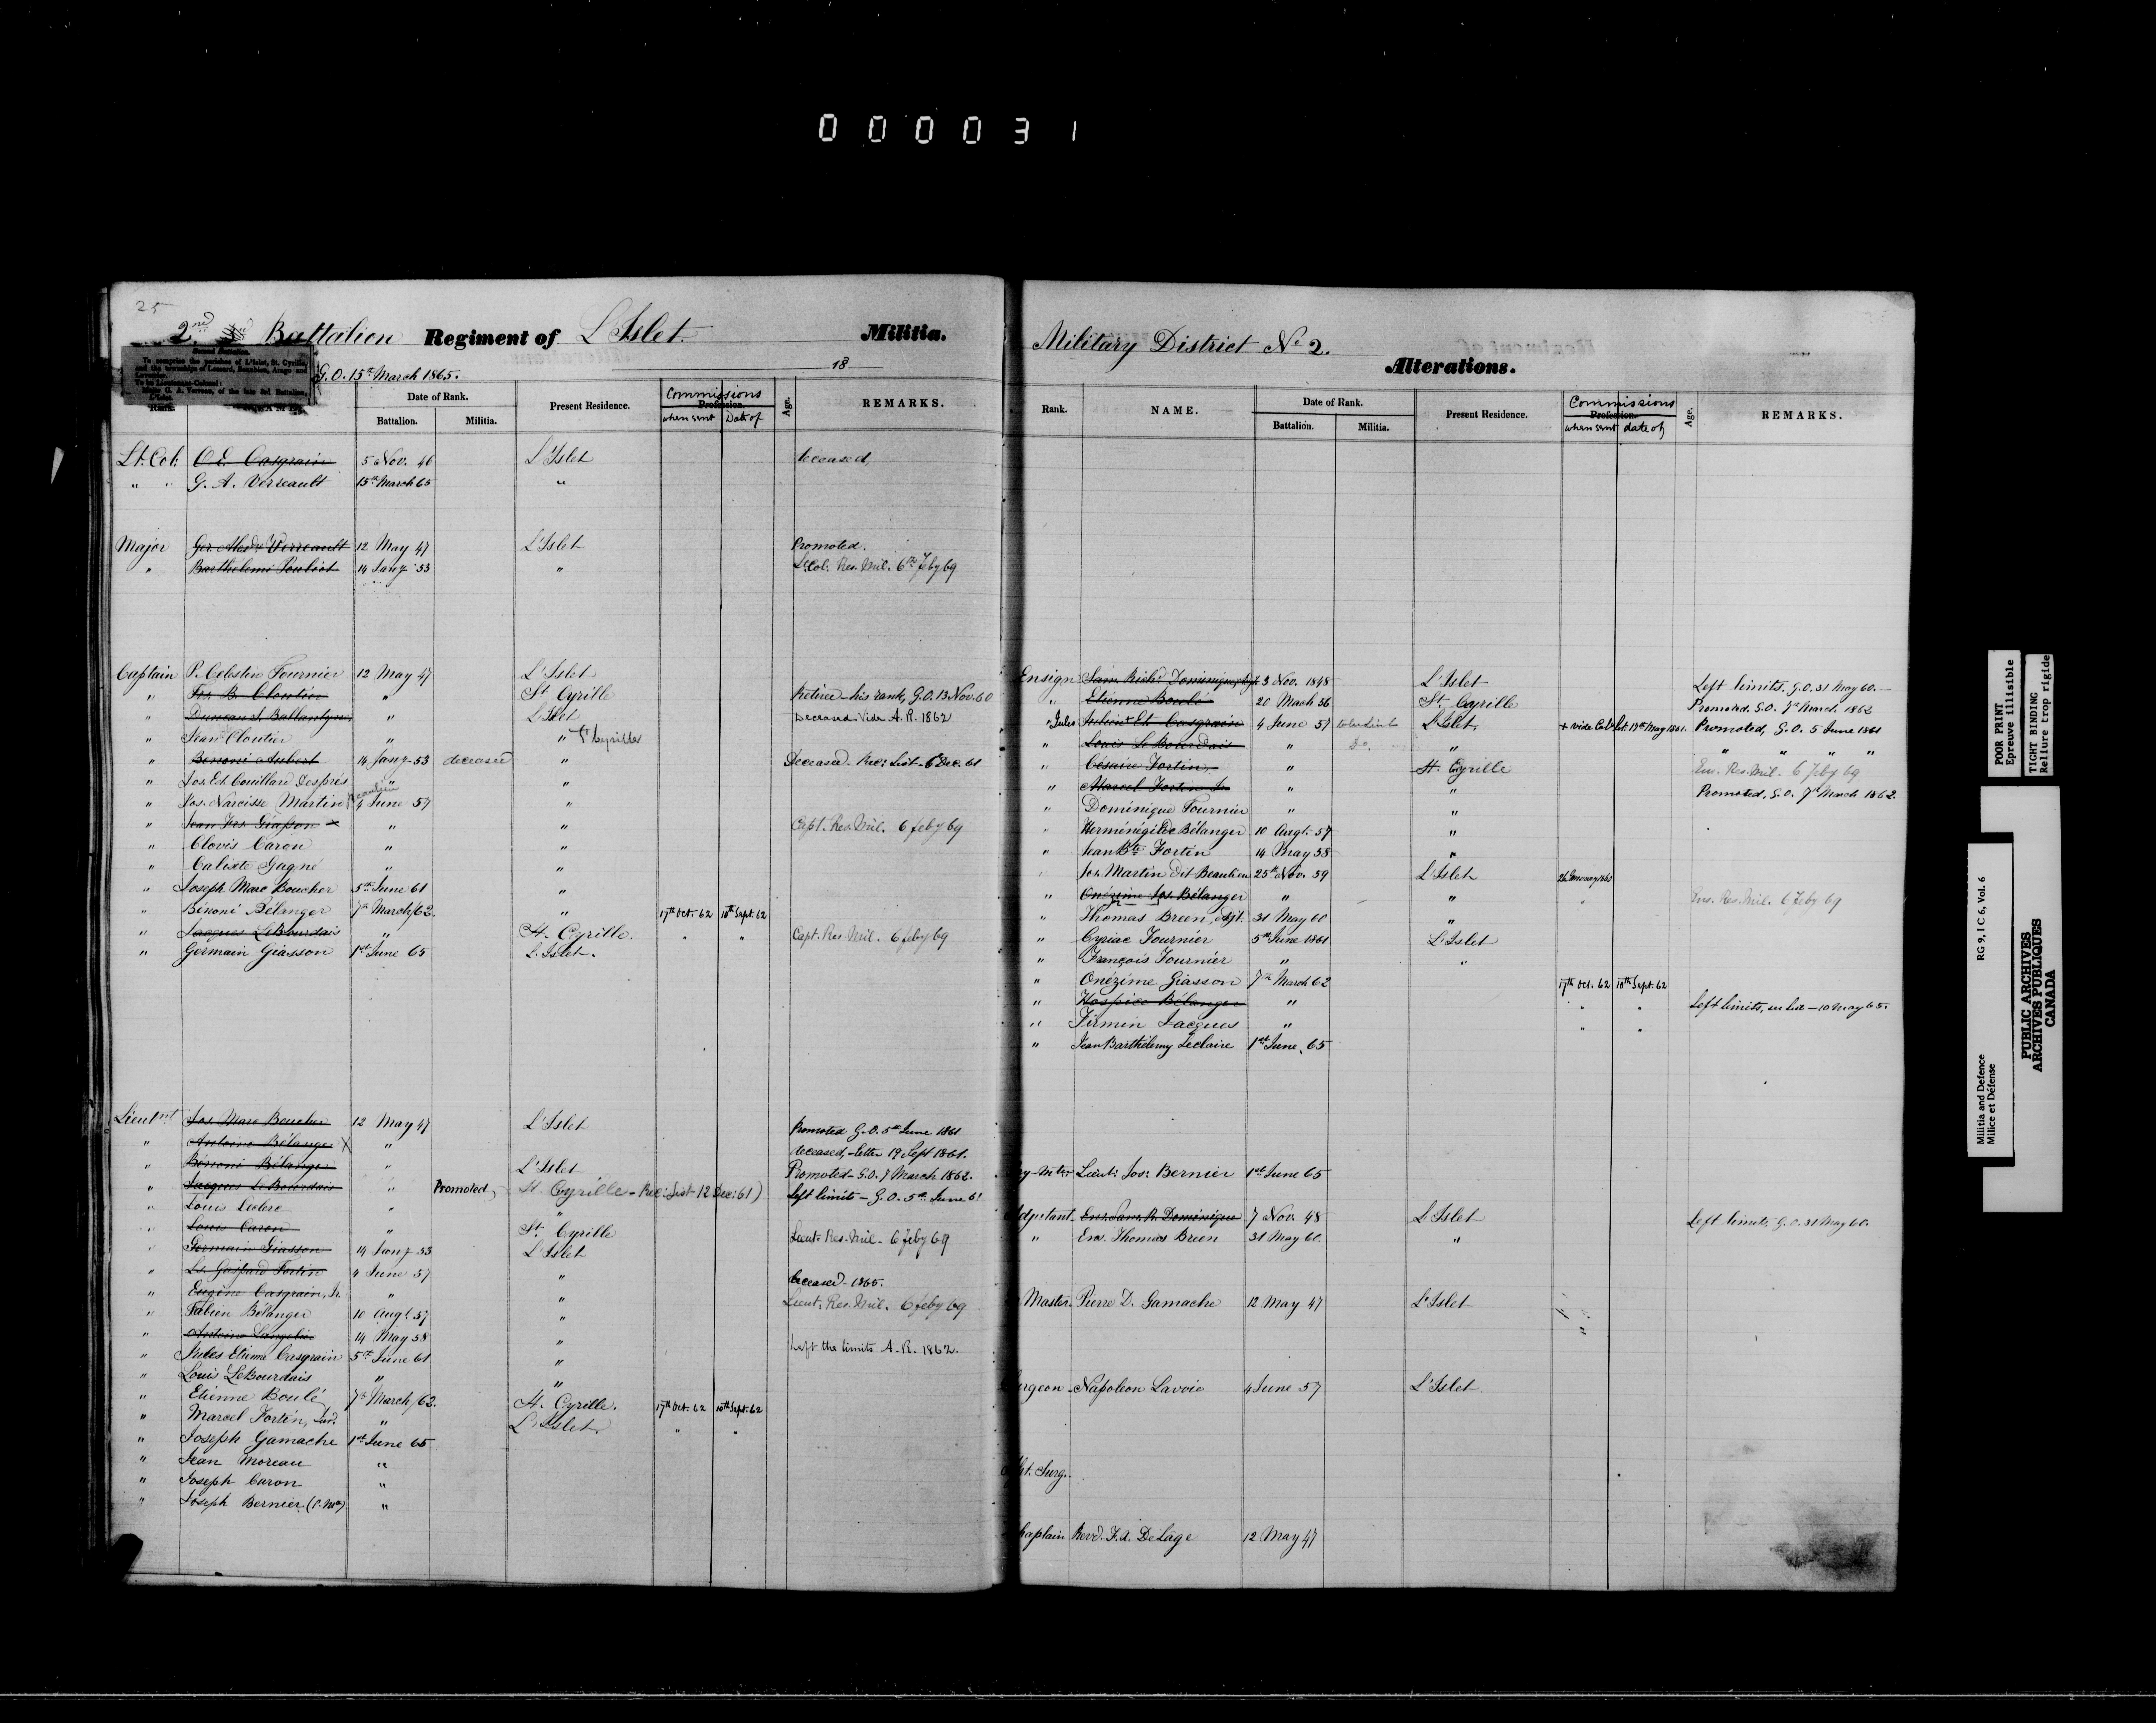 000031
25
2nd Battalion Regiment of L'Islet. Militia.
Second Battalion.
To comprise the parishes of L'Islet, St. Cyrille,
and the townships of
To be Lieutenant-Colonel:
Major G. A. Verreau, of the late 3rd Battalion,
L'Islet.
G.O. 15th March 1865.
18
Rank. NAME. Date of Rank. Battalion. Militia. Present Residence. Commissions Profession. when sent Date of Age. REMARKS.
Lt. Col. O. E. Casgrain 5 Nov. 46 L'Islet deceased,
" " G. A. Verreault 15th March 65 "
Major Ger. Alexdr Verreault 12 May 47 L'Islet Promoted.
" Barthelemi Pouliot 14 Jany 53 " Lt. Col. Res. Mil. 6th feby 69
Captain P. Celestin Fournier 12 May 47 L'Islet
" Frs. B. Cloutier " St Cyrille Retired - his rank, G.O. 13 Nov. 60
" Duncan S. Ballantyne " L'Islet Deceased Vide A. R. 1862
" Jean Cloutier " " St Cyrille
" Benoni Aubert 14 Jany 53 deceased " Deceased - Rec: List - 6 Dec. 61
" Jos. Et. Couillard Després " "
" Jos. Narcisse Martin Beaulieu 4 June 57 "
" Jean Frs. Giasson × " " Capt. Res. Mil. 6 feby 69
" Clovis Caron " "
" Calixte Gagné " "
" Joseph Marc Boucher 5th June 61 "
" Bénoni Bélanger 7th March/62. " 17th Oct. 62 10th Sept. 62
" Jacques LeBourdais " St. Cyrille. " " Capt. Res. Mil. 6 feby 69
" Germain Giasson 1st June 65 L'Islet.
Lieutnt Jos. Marc Boucher 12 May 47 L'Islet Promoted G.O. 5th June 1861
" Antoine Bélanger X " deceased, - letter 19 Sept 1861.
" Bénoni Bélanger " L'Islet Promoted - G.O. 7 March 1862.
" Jacques Le Bourdais " Promoted, St. Cyrille - Rec: List - 12 Dec: 61) left limits - G.O. 5th June 61
" Louis Leclerc " "
" Louis Caron " St. Cyrille
" Germain Giasson 14 Jany 53 L'Islet Lieut. Res. Mil. 6 feby 69
" Ls. Gaspard Fortin 4 June 57 "
" Eugène Casgrain, Jr. " " deceased - 1865.
" Fabien Bélanger 10 Augt. 57 " Lieut. Res. Mil. 6 feby 69
" Antoine Langelier 14 May 58 "
" Jules Etienne Casgrain 5th June 61 " Left the limits A. R. 1862.
" Louis LeBourdais " "
" Etienne Boulé 7th March/62. St. Cyrille. 17th Oct. 62 10th Sept. 62
" Marcel Fortin, Jnr. " L'Islet. " "
" Joseph Gamache 1st June 65
" Jean Moreau "
" Joseph Caron "
" Joseph Bernier "
Military District No 2.
Alterations.
Rank. NAME. Date of Rank. Battalion. Militia. Present Residence. Commissions Profession. when sent date of Age. REMARKS.
Ensign Sam. Richd Dominique, 3 Nov. 1848 L'Islet Left limits. G.O. 31 May 60.
" Etienne Boulé 20 March 56 St. Cyrille Promoted. G.O. 7th March 1862
" Jules Et. Casgrain 4 June 57 L'Islet. Promoted, G.O. 5 June 1861
" Louis Le Bourdais " Do. " " " " "
" Césaire Fortin " St. Cyrille Ens. Res. Mil. 6 feby 69
" Marcel Fortin Jr " " Promoted, G.O. 7th March 1862.
" Dominique Fournier " "
" Herménégilde Bélanger 10 Augt. 57 "
" Jean Bte. Fortin 14 May 58 "
" Jos. Martin dit Beaulieu 25th Nov. 59 L'Islet
" Onézime Jos. Bélanger " " " Ens. Res. Mil. 6 feby 69
" Thomas Breen, Adjt. 31 May 60 "
" Cyriac Fournier 5th June 1861 L'Islet
" François Fournier " "
" Onézime Giasson 7th March 62 17th Oct. 62 10th Sept. 62
" Hospice Bélanger " " " Left limits, 10 May 65.
" Firmin Jacques " " "
" Jean Barthélemy Leclaire 1st June, 65
Lieut: Jos: Bernier 1st June 65
Adjutant Ens. Sam. R. Dominique 7 Nov. 48 L'Islet Left limits G.O. 31 May 60.
" Ens. Thomas Breen 31 May 60 "
Master Pierre D. Gamache 12 May 47 L'Islet
Surgeon Napoleon Lavoie 4 June 57 L'Islet
Surg.
Chaplain Revd. F. A. DeLage 12 May 47
POOR PRINT
Epreuve illisible
TIGHT BINDING
Reliure trop rigide
Militia and Defence
Milice et Défense
RG 9, I C 6, Vol. 6
PUBLIC ARCHIVES
ARCHIVES PUBLIQUES
CANADA